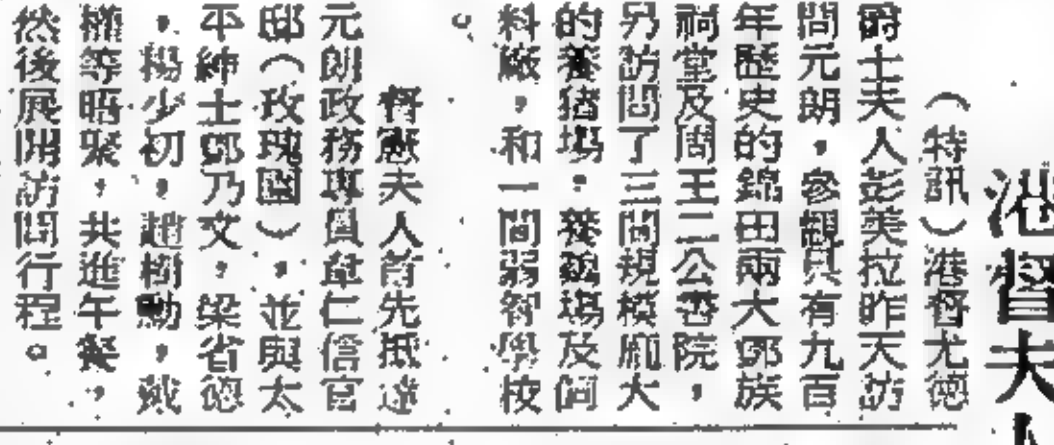 港督夫人
（特訊）港督尤德
爵士夫人彭美拉昨天訪
問元朗，參觀具有九百
年歷史的錦田兩大鄧族
祠堂及周王二公書院，
另訪問了三間規模頗大
的養猪場，養鷄場及飼
料廠，和一間弱智學校
。
督憲夫人首先抵達
元朗政務專員韋仁信官
邸（玫瑰園），並與太
平紳士鄧乃文，梁省德
，楊少初，趙樹勳，戴
權等晤聚，共進午餐，
然後展開訪問行程。